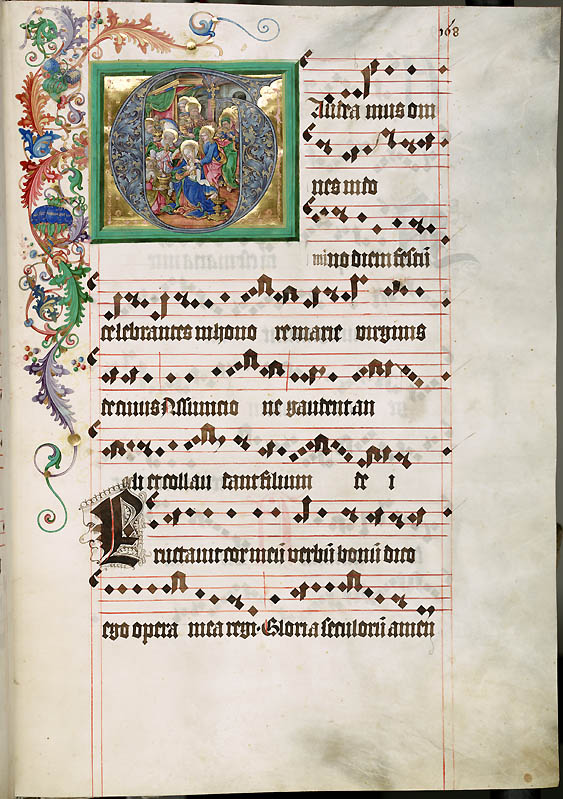 168
Audea mus om
nes in do
mi no diem festū
celebrantes in hono re marie virginis
de cuius Assumtio ne gaudent an
geli et collau dant filium de i
Eructavit cor meū verbū bonū dico
ego opera mea regi. Gloria seculorū amen